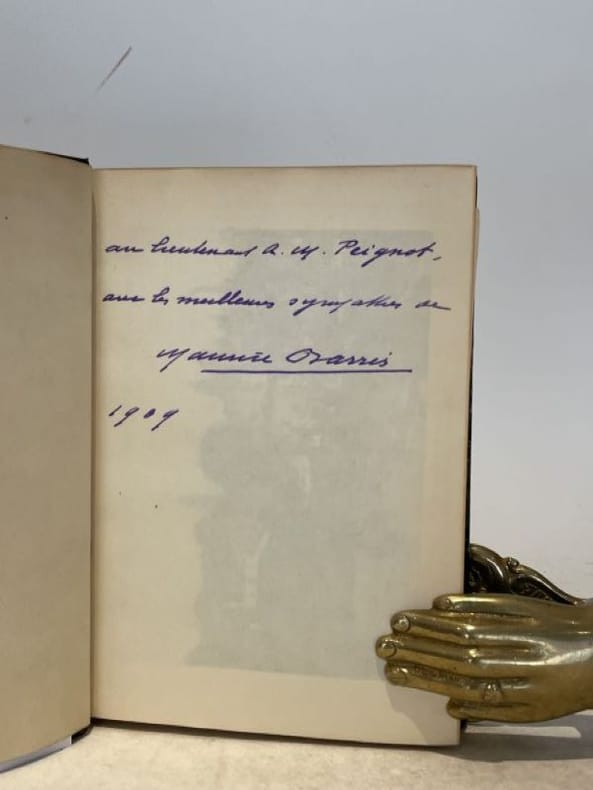 au Lieutenant A. M. Peignot,
avec les meilleures sympathies de
Maurice Barrès
1909